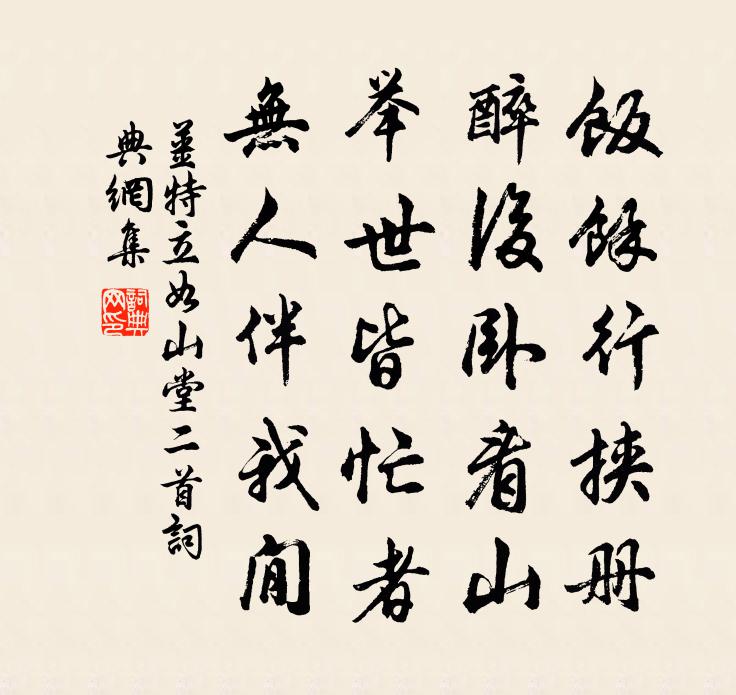 飯餘行挾册
醉後卧看山
举世皆忙者
無人伴我閒
薑特立如山堂二首詞
典網集
詞典
网印